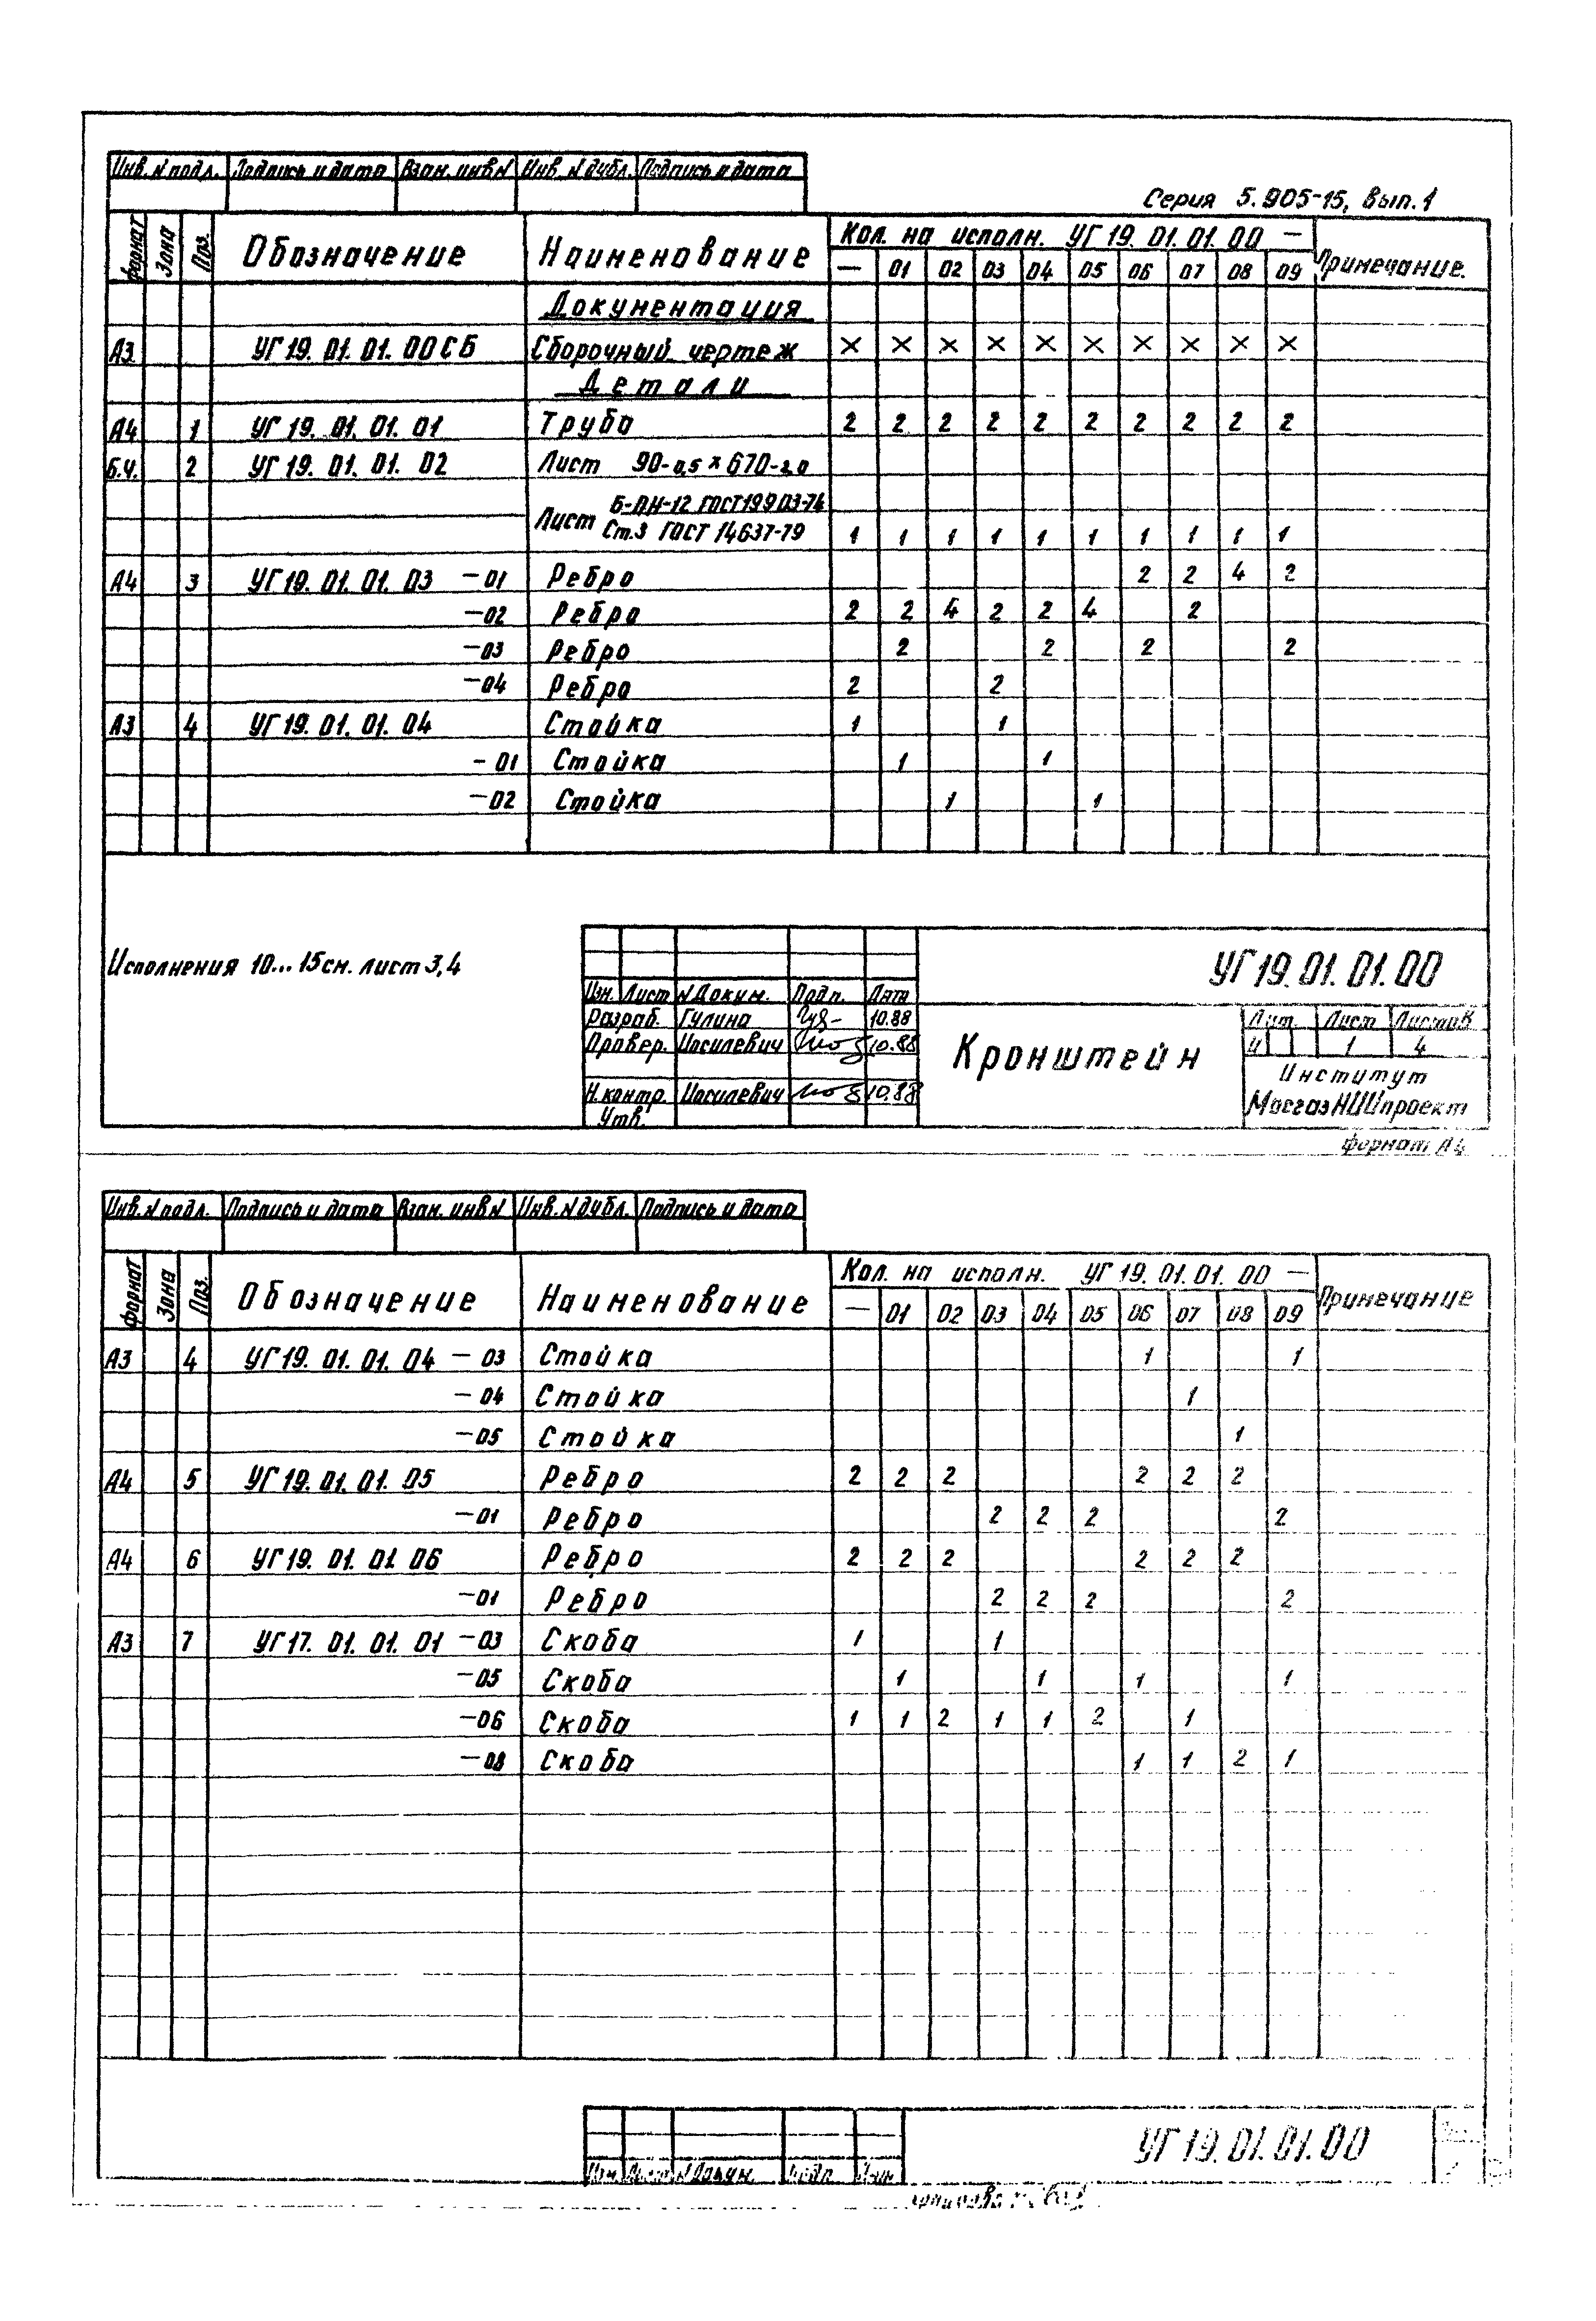 Инв. N подл. Подпись и дата Взам. инв N Инв. N дубл. Подпись и дата
Серия 5.905-15, вып. 1
формат Зона Поз. Обозначение Наименование Кол. на исполн. УГ 19. 01. 01. 00 — Примечание.
— 01 02 03 04 05 06 07 08 09
Документация
А3 УГ 19. 01. 01. 00 СБ Сборочный чертеж × × × × × × × × × ×
Детали
А4 1 УГ 19. 01. 01. 01 Труба 2 2 2 2 2 2 2 2 2 2
Б.ч. 2 УГ 19. 01. 01. 02 Лист 90-0,5 × 670-2,0
Лист Б-ПН-12 ГОСТ 19903-74
Ст.3 ГОСТ 14637-79 1 1 1 1 1 1 1 1 1 1
А4 3 УГ 19. 01. 01. 03 —01 Ребро 2 2 4 2
—02 Ребро 2 2 4 2 2 4 2
—03 Ребро 2 2 2 2
—04 Ребро 2 2
А3 4 УГ 19. 01. 01. 04 Стойка 1 1
- 01 Стойка 1 1
—02 Стойка 1 1
Исполнения 10... 15 см. лист 3,4
УГ 19. 01. 01. 00
Изм. Лист N Докум. Подп. Дата
Разраб. Гулина 10.88
Провер. Иосилевич 10.88
Н.контр. Иосилевич 10.88
Утв.
Кронштейн
Лит. Лист Листов
И 1 4
Институт
МосгазНИИпроект
формат А4
Инв. N подл. Подпись и дата Взам. инв N Инв. N дубл. Подпись и дата
формат Зона Поз. Обозначение Наименование Кол. на исполн. УГ 19. 01. 01. 00 — Примечание
— 01 02 03 04 05 06 07 08 09
А3 4 УГ 19. 01. 01. 04 — 03 Стойка 1 1
— 04 Стойка 1
—05 Стойка 1
А4 5 УГ 19. 01. 01. 05 Ребро 2 2 2 2 2 2
—01 Ребро 2 2 2 2
А4 6 УГ 19. 01. 01 06 Ребро 2 2 2 2 2 2
—01 Ребро 2 2 2 2
А3 7 УГ 17. 01. 01. 01 —03 Скоба 1 1
—05 Скоба 1 1 1 1
—06 Скоба 1 1 2 1 1 2 1
—08 Скоба 1 1 2 1
УГ 19. 01. 01. 00
Изм. Лист N Докум. Подп. Дата